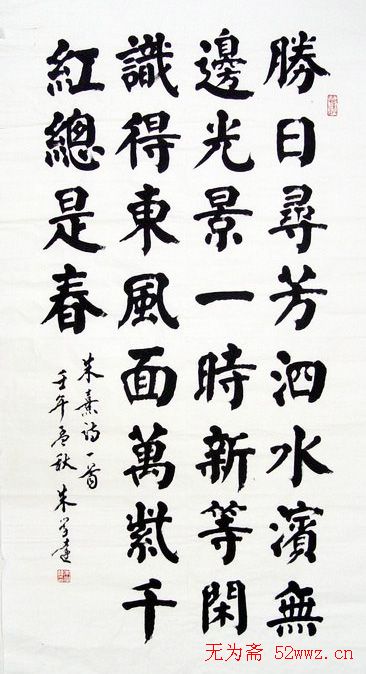 勝日尋芳泗水濱無
邊光景一時新等閑
識得東風面萬紫千
紅總是春
朱熹诗一首
壬午孟秋 朱
无为斋 52wwz.cn